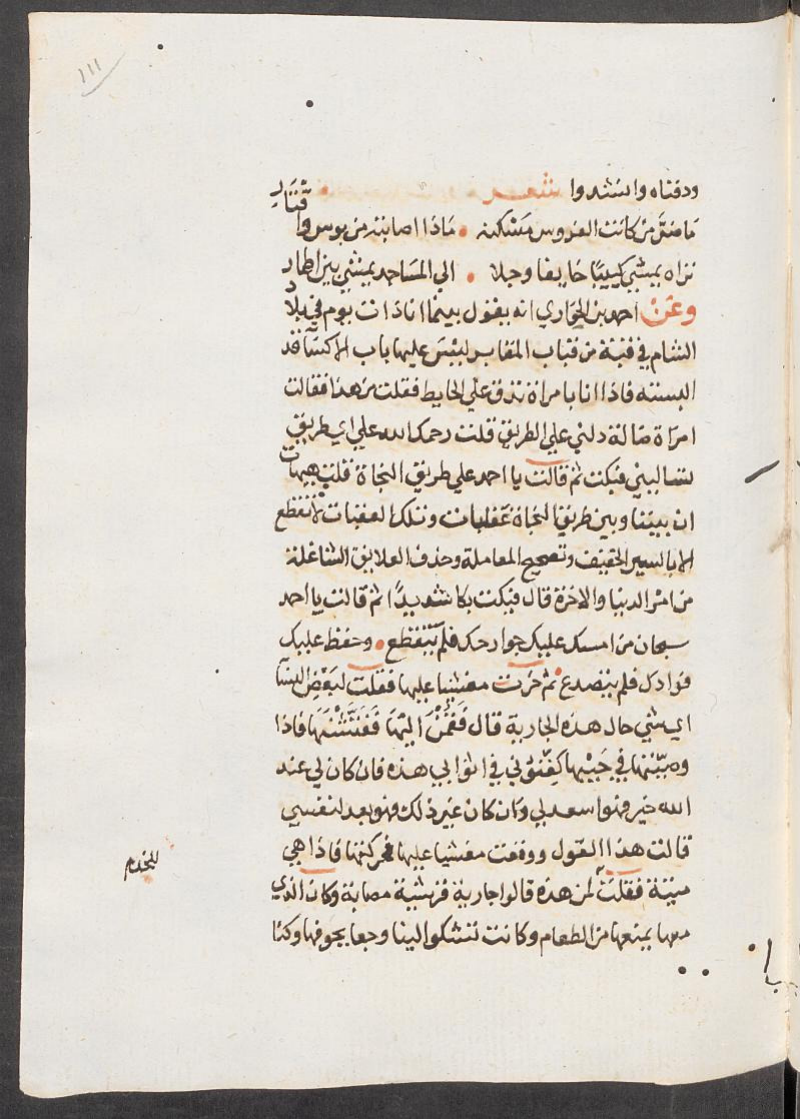 ١١١
ودفناه وانشدوا شعر
ما ضر من كانت الفردوس مسكنه • ماذا اصابته من بوس واقتار
تراه يمشي كييبا خايفا وجلا • الي المساجد يمشي بين اطمار
وعن احمد بن الحواري انه يقول بينما انا ذات يوم في بلاد
الشام في قبة من قباب المقابر ليس عليها باب الا كسا قد
اسبلته فاذا انا بامراة تدق علي الحايط فقلت من هذا فقالت
امراة ضالة دلني علي الطريق قلت رحمك الله علي اي طريق
تساليني فبكت ثم قالت يا احمد علي طريق النجاة قلت هيهات
ان بيننا وبين طريق النجاة عقبات وتلك العقبات لا تنقطع
الا بالسير الحثيث وتصحيح المعاملة وحذف العلايق الشاغلة
من امر الدنيا والاخرة قال فبكت بكا شديدا ثم قالت يا احمد
سبحان من امسك عليك جوارحك فلم تتقطع • وحفظ عليك
فوادك فلم ينصدع ثم خرت مغشيا عليها فقلت لبعض النسا
اي شي حال هذه الجارية قال فقمن اليها ففتشنها فاذا
وصيتها في جيبها كفنوني في اثوابي هذه فان كان لي عند
الله خير فهوا سعد لي وان كان غير ذلك فهو بعد لنفسي
قالت هذا القول ووقعت مغشيا عليها فحركتها فاذا هي
ميتة فقلت لمن هذه قالوا جارية قرشية مصابة وكان الذي
معها يمنعها من الطعام وكانت تشكوا الينا وجعا بجوفها وكنا